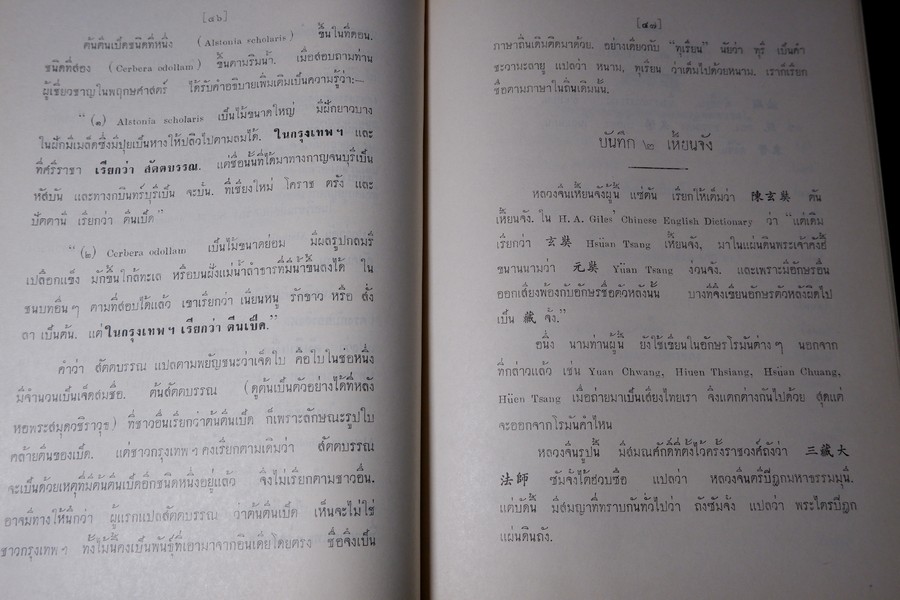 [๔๖]
ต้นตีนเป็ดชนิดที่หนึ่ง (Alstonia scholaris) ขึ้นในที่ดอน.
ชนิดที่สอง (Cerbera odollam) ขึ้นตามริมน้ำ. เมื่อสอบถามท่าน
ผู้เชี่ยวชาญในพฤกษศาสตร์ ได้รับคำอธิบายเพิ่มเติมเป็นความรู้ว่า:—
“(๑) Alstonia scholaris เป็นไม้ขนาดใหญ่ มีฝักยาวบาง
ในฝักมีเมล็ดซึ่งมีปุยเป็นหางให้ปลิวไปตามลมได้. ในกรุงเทพฯ และ
ที่ศรีราชา เรียกว่า สัตตบรรณ. แต่ชื่อนั้นที่ได้มาทางกาญจนบุรีเป็น
หัสบัน และทางกบินทร์บุรีเป็น จะบัน. ที่เชียงใหม่ โคราช ตรัง และ
ปัตตานี เรียกว่า ตีนเป็ด”
“(๒) Cerbera odollam เป็นไม้ขนาดย่อม มีผลรูปกลมรี
เปลือกแข็ง มักขึ้นใกล้ทะเล หรือบนฝั่งแม่น้ำลำธารที่มีน้ำขึ้นลงได้ ใน
ชนบทอื่นๆ ตามที่สอบได้แล้ว เขาเรียกว่า เนียนหนู รักขาว หรือ สั่ง
ลา เป็นต้น. แต่ในกรุงเทพฯ เรียกว่า ตีนเป็ด.”
คำว่า สัตตบรรณ แปลตามพยัญชนะว่าเจ็ดใบ คือใบในช่อหนึ่ง
มีจำนวนเป็นเจ็ดสมชื่อ. ต้นสัตตบรรณ (ดูต้นเป็นตัวอย่างได้ที่หลัง
หอพระสมุดวชิราวุธ) ที่ชาวอื่นเรียกว่าต้นตีนเป็ด ก็เพราะลักษณะรูปใบ
คล้ายตีนของเป็ด. แต่ชาวกรุงเทพฯ คงเรียกตามเดิมว่า สัตตบรรณ
จะเป็นด้วยเหตุที่มีต้นตีนเป็ดอีกชนิดหนึ่งอยู่แล้ว จึงไม่เรียกตามชาวอื่น.
อาจมีทางให้นึกว่า ผู้แรกแปลสัตตบรรณ ว่าต้นตีนเป็ด เห็นจะไม่ใช่
ชาวกรุงเทพฯ ทั้งไม้นี้คงเป็นพันธุ์ที่เอามาจากอินเดียโดยตรง ชื่อจึงเป็น
[๔๗]
ภาษาถิ่นเดิมติดมาด้วย. อย่างเดียวกับ “ทุเรียน” นัยว่า ทุรี เป็นคำ
ชะวามะลายู แปลว่า หนาม, ทุเรียน ว่าเต็มไปด้วยหนาม. เราก็เรียก
ชื่อตามภาษาในถิ่นเดิมนั้น.
บันทึก ๒ เหียนจัง
หลวงจีนเหียนจังผู้นี้ แซ่ตัน เรียกให้เต็มว่า 陳玄奘 ตัน
เหียนจัง. ใน H. A. Giles’ Chinese English Dictionary ว่า “แต่เดิม
เรียกว่า 玄奘 Hsüan Tsang เหียนจัง, มาในแผ่นดินพระเจ้าคังฮี
ขนานนามว่า 元奘 Yüan Tsang ง่วนจัง. และเพราะมีอักษรอื่น
ออกเสียงพ้องกับอักษรชื่อตัวหลังนั้น บางทีจึงเขียนอักษรตัวหลังผิดไป
เป็น 藏 จั๋ง.”
อนึ่ง นามท่านผู้นี้ ยังใช้เขียนในอักษรโรมันต่างๆ นอกจาก
ที่กล่าวแล้ว เช่น Yuan Chwang, Hiuen Thsiang, Hsüan Chuang,
Hüen Tsang เมื่อถ่ายมาเป็นเสียงไทยเรา จึงแตกต่างกันไปด้วย สุดแต่
จะออกจากโรมันคำไหน
หลวงจีนรูปนี้ มีสมณศักดิ์ที่ตั้งไว้ครั้งราชวงศ์ถังว่า 三藏大
法師 ซัมจั๋งไต้ฮวบซือ แปลว่า หลวงจีนตรีปิฎกมหาธรรมมุนี.
แต่บัดนี้ มีสมญาที่ทราบกันทั่วไปว่า ถังซัมจั๋ง แปลว่า พระไตรปิฎก
แผ่นดินถัง.